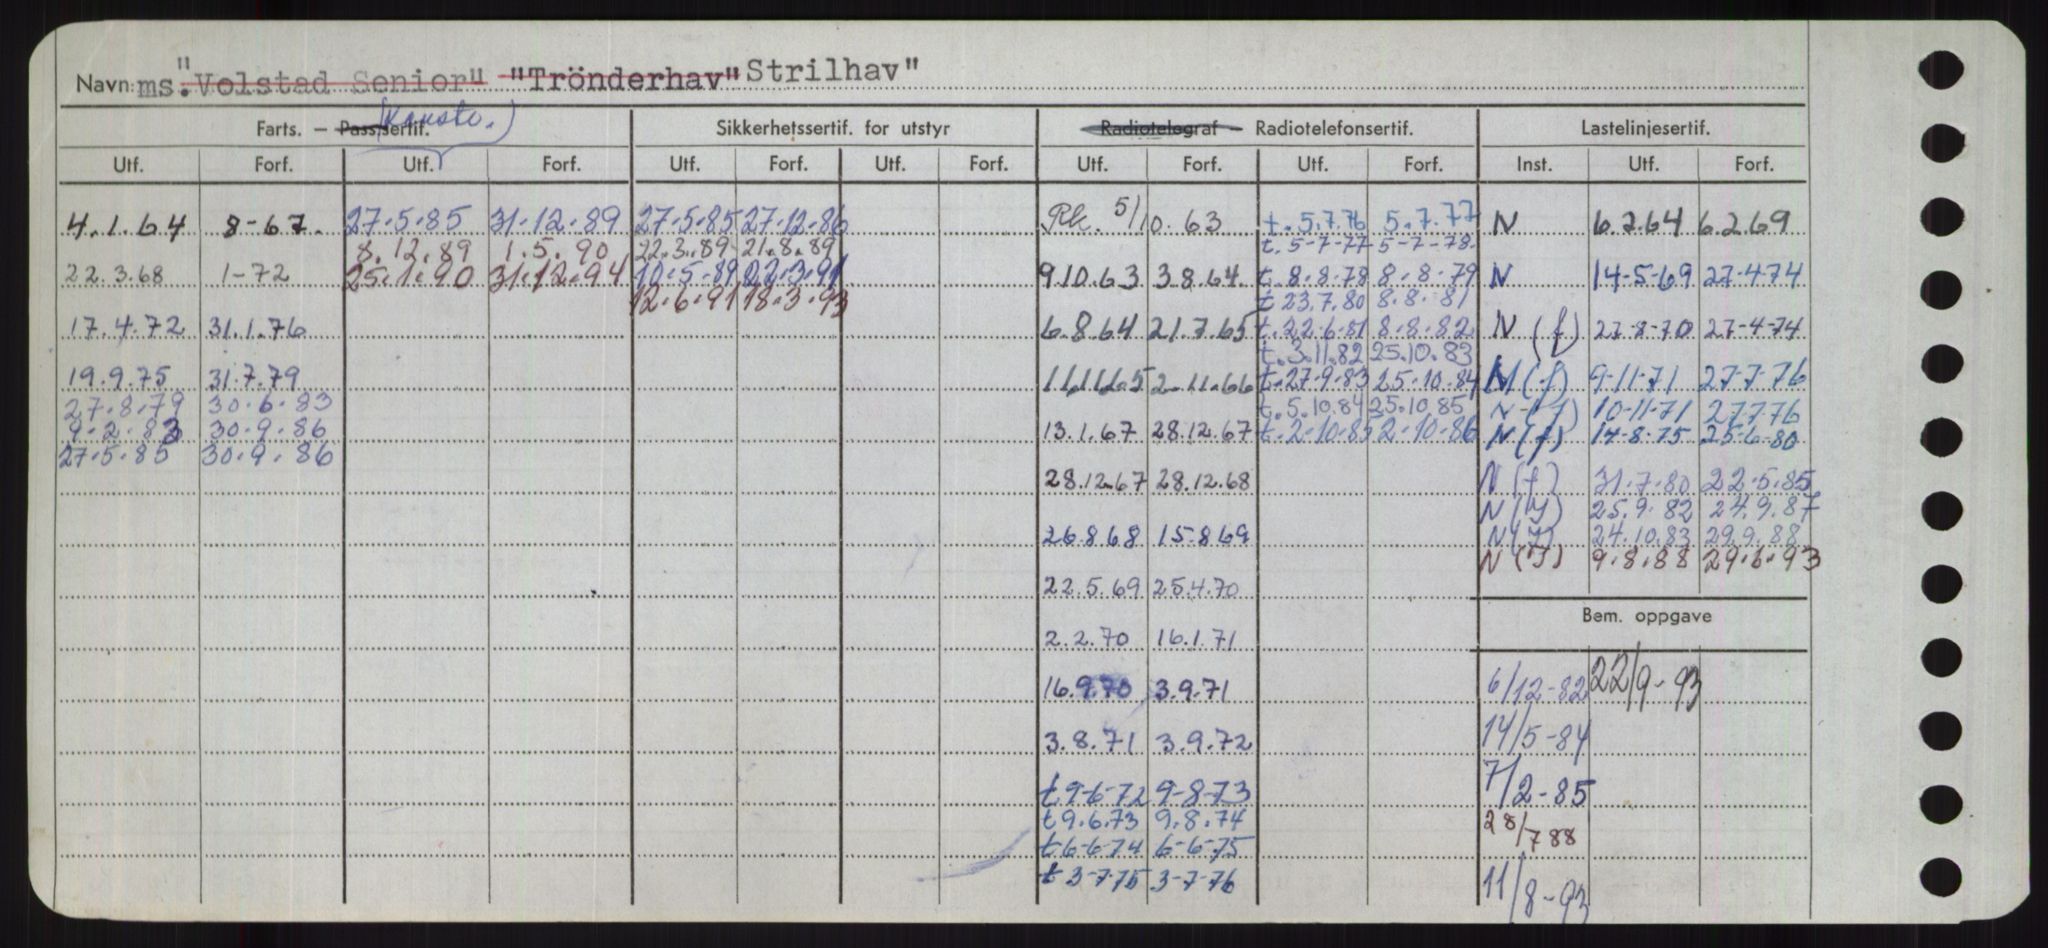 Navn: ms. "Volstad Senior" "Trönderhav" Strilhav"
Farts. — Passsertif. (Konstr.) Sikkerhetssertif. for utstyr Radiotelegraf — Radiotelefonsertif. Lastelinjesertif.
Utf. Forf. Utf. Forf. Utf. Forf. Utf. Forf. Utf. Forf. Utf. Forf. Inst. Utf. Forf.
4.1.64 8-67. 27.5.85 31.12.89 27.5.85 27.12.86 Rk. 5/10.63 t. 5.7.76 5.7.77 N 6.2.64 6.2.69
8.12.89 1.5.90 22.3.89 21.8.89 t. 5-7-77 5-7-78
22.3.68 1-72 25.1.90 31.12.94 10.5.89 22.3.91 9.10.63 3.8.64. t. 8.8.78 8.8.79 N 14-5-69 27-4-74
12.6.91 18.3.93 t 23.7.80 8.8.81
17.4.72 31.1.76 6.8.64 21.7.65 t. 22.6.81 8.8.82 N (f) 27-8-70 27-4-74
t. 3.11.82 25.10.83
19.9.75 31.7.79 11.11.65 2.11.66 t. 27.9.83 25.10.84 N (f) 9-11-71 27-7-76
27.8.79 30.6.83 t. 5.10.84 25.10.85 N (f) 10-11-71 27.7.76
9.2.83 30.9.86 13.1.67 28.12.67 t. 2.10.85 2.10.86 N (f) 14-8-75 25-6-80
27.5.85 30.9.86
28.12.67 28.12.68 N (f) 31.7.80 22.5.85
N (f) 25.9.82 24.9.87
26.8.68 15.8.69 N (f) 24.10.83 29.9.88
N (f) 9.8.88 29.6.93
22.5.69 25.4.70
Bem. oppgave
2.2.70 16.1.71
16.9.70 3.9.71 6/12-82 22/9-93
3.8.71 3.9.72 14/5-84
t 9-6-72 9-8-73 7/2-85
t 9.6.73 9.8.74 28/7 88
t 6-6-74 6-6-75
t 3-7-75 3-7-76 11/8-93